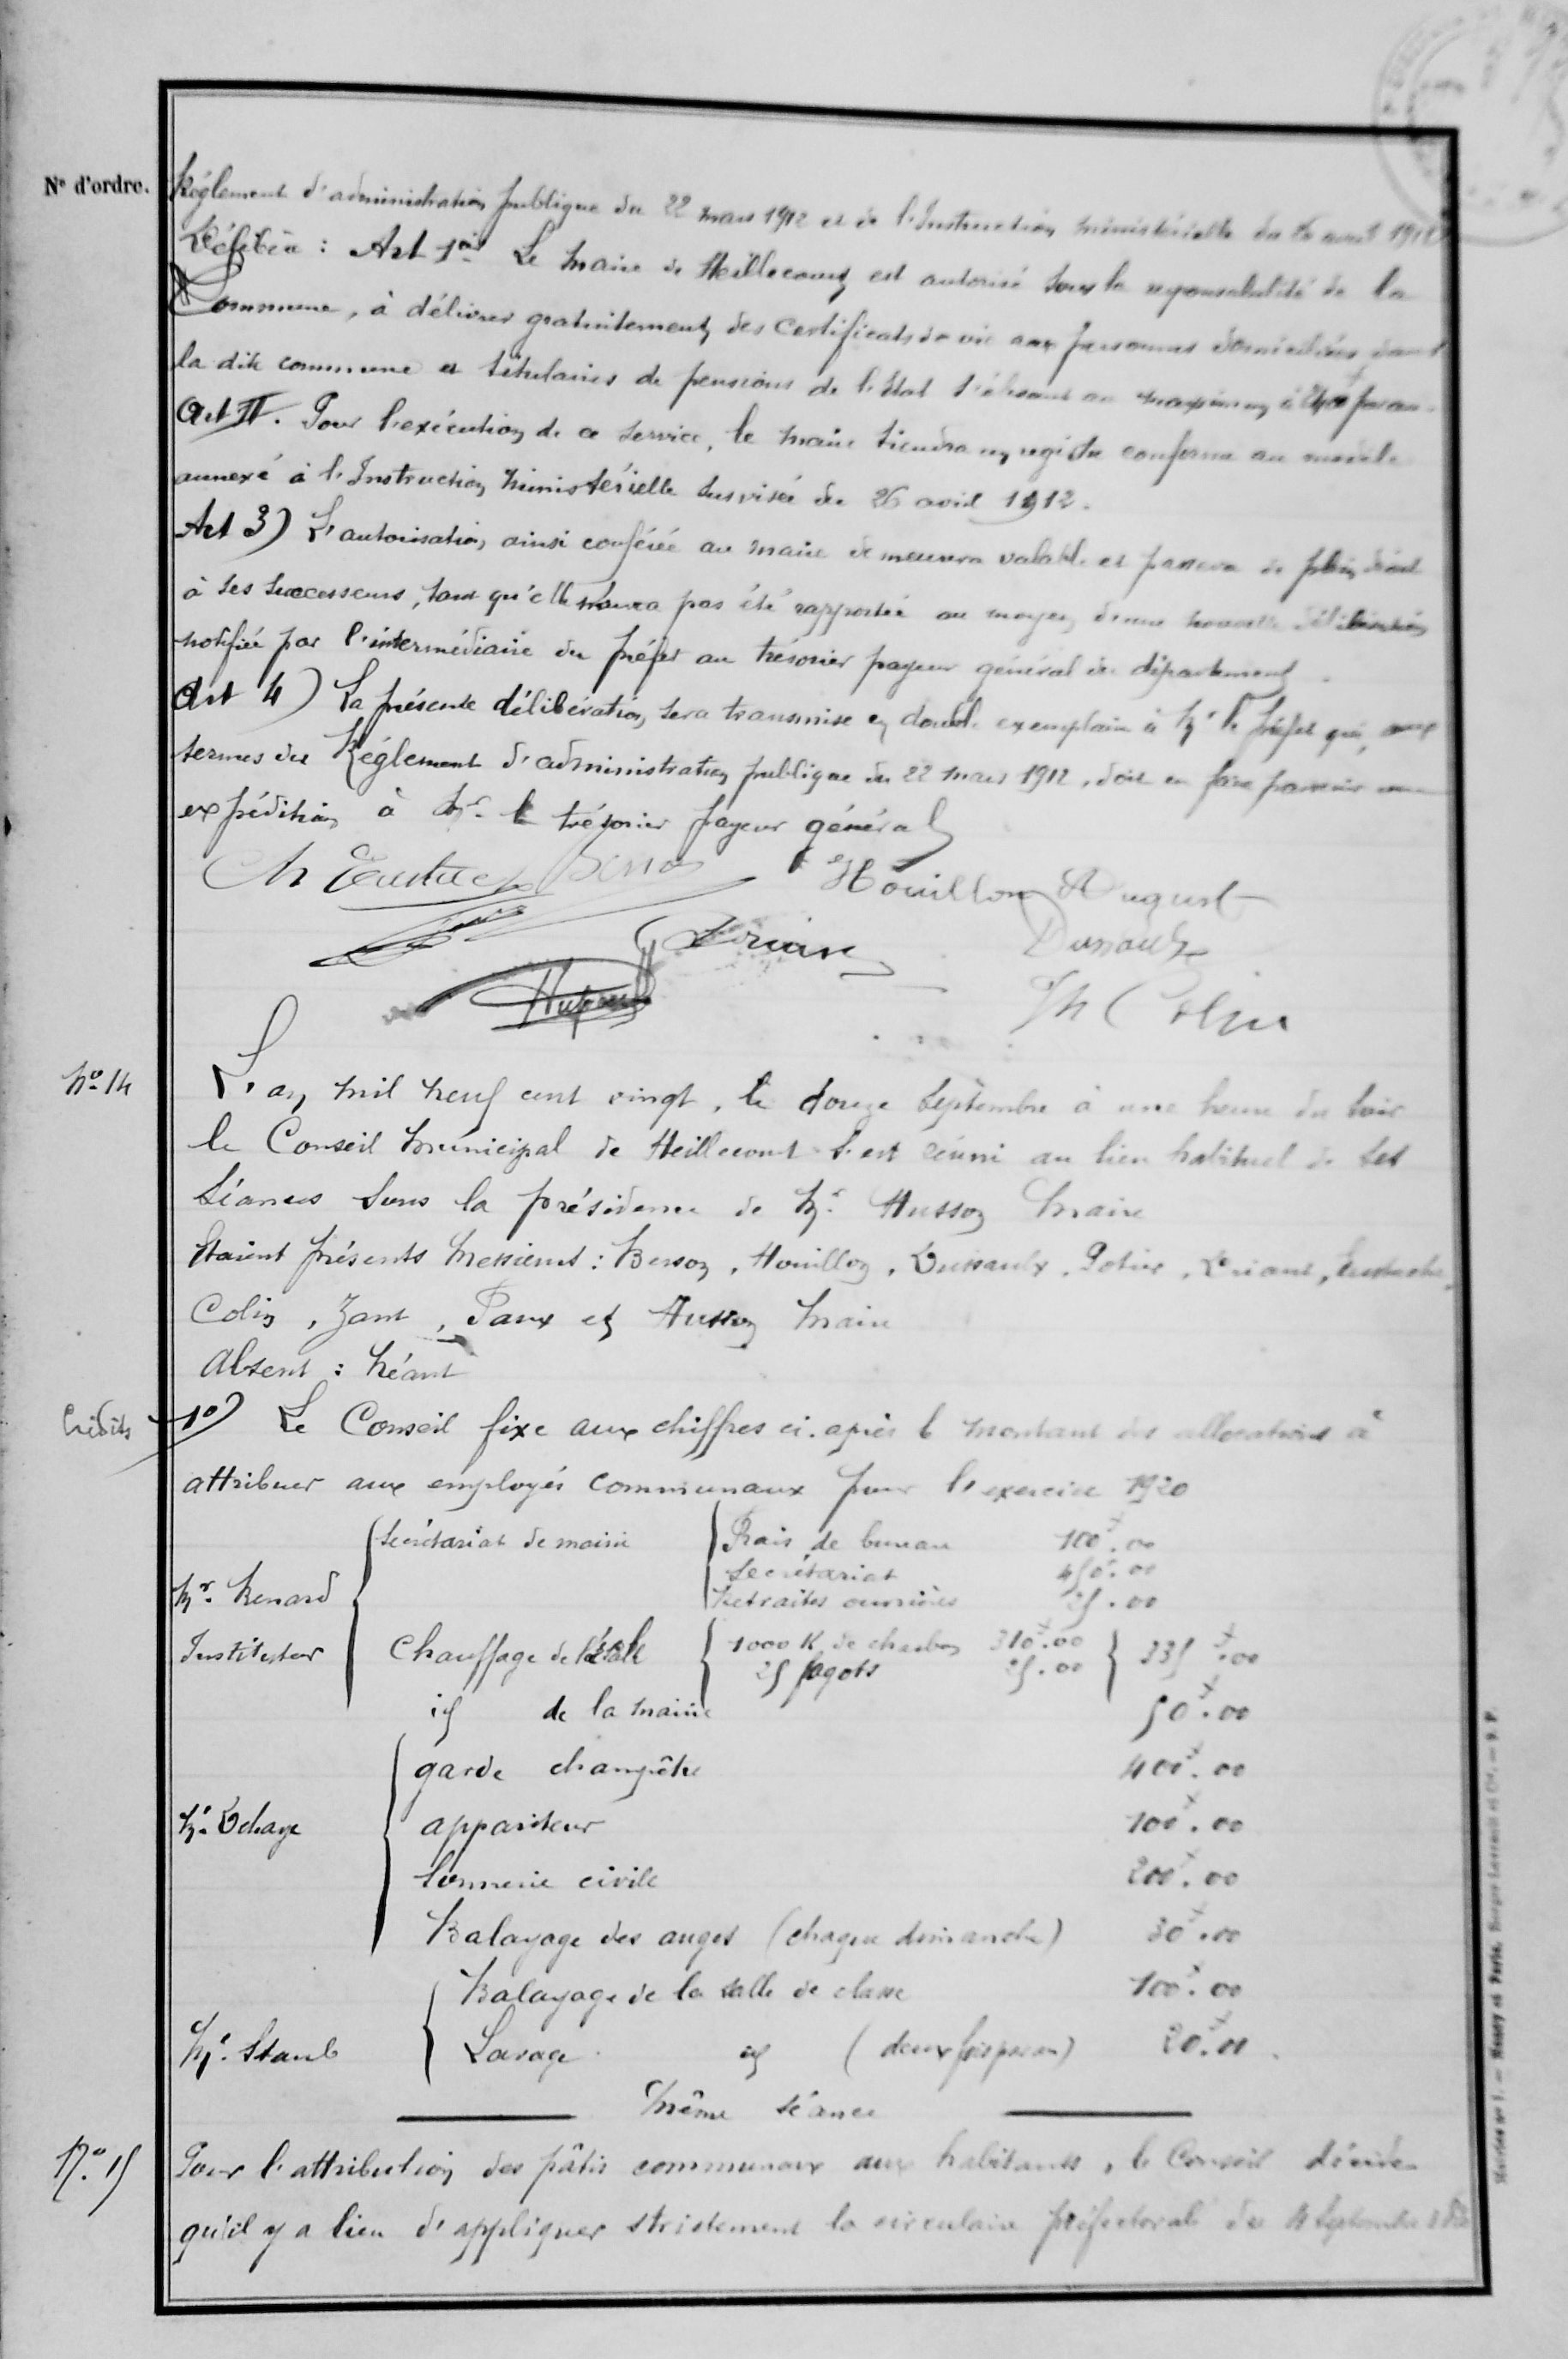 N° d'ordre.
Règlement d'administration publique du 22 mars 1912 et de l'Instruction ministérielle du 26 avril 1912
Délibère : Art 1er Le Maire de Heillecourt est autorisé sous la responsabilité de la
Commune, à délivrer gratuitement des Certificats de vie aux personnes domiciliées dans
la dite commune et titulaires de pensions de l'Etat s'élevant au maximum à par an.
Art II. Pour l'exécution de ce service, le Maire tiendra un registre conforme au modèle
annexé à l'Instruction Ministérielle susvisée du 26 avril 1912.
Art 3) L'autorisation ainsi conférée au maire demeurera valable et passera de plein droit
à ses successeurs, tant qu'elle n'aura pas été rapportée au moyen d'une nouvelle délibération
notifiée par l'intermédiaire du préfet au trésorier payeur général du département.
Art 4) La présente délibération sera transmise en double exemplaire à Mr le Préfet qui, aux
termes du Règlement d'administration publique du 22 mars 1912, doit en faire parvenir une
expédition à Mr. le trésorier payeur général
Ch Eustache Houillon August
Briant Dussaulx
Husson Th Colin
No. 14
L'an mil neuf cent vingt, le douze Septembre à une heure du soir
le Conseil Municipal de Heillecourt s'est réuni au lieu habituel de ses
Séances sous la présidence de Mr. Husson Maire
Etaient présents Messieurs : Besson, Houillon, Dussaulx, Potier, Briant, Eustache,
Colin, Zant, Paux et Husson Maire
Absent : Néant
Crédits
1°) Le Conseil fixe aux chiffres ci-après le montant des allocations à
attribuer aux employés communaux pour l'exercice 1920
Secrétariat de mairie Frais de bureau 100f.00
Secrétariat 450f.00
Mr. Renard Retraites ouvrières 25.00
Instituteur Chauffage de l'école 1000 K. de charbon 310f.00 335f.00
25 fagots 25.00
id de la Mairie 50f.00
garde champêtre 400f.00
Mr. Dehaye appariteur 100f.00
Sonnerie civile 200f.00
Balayage des auges (chaque dimanche) 30f.00
Balayage de la salle de classe 100f.00
Mr. Staub Lavage id (deux fois par an) 20f.00
Même séance
N°. 15
Pour l'attribution des pâtis communaux aux habitants, le Conseil décide
qu'il y a lieu d'appliquer strictement la circulaire préfectorale du 4 Septembre